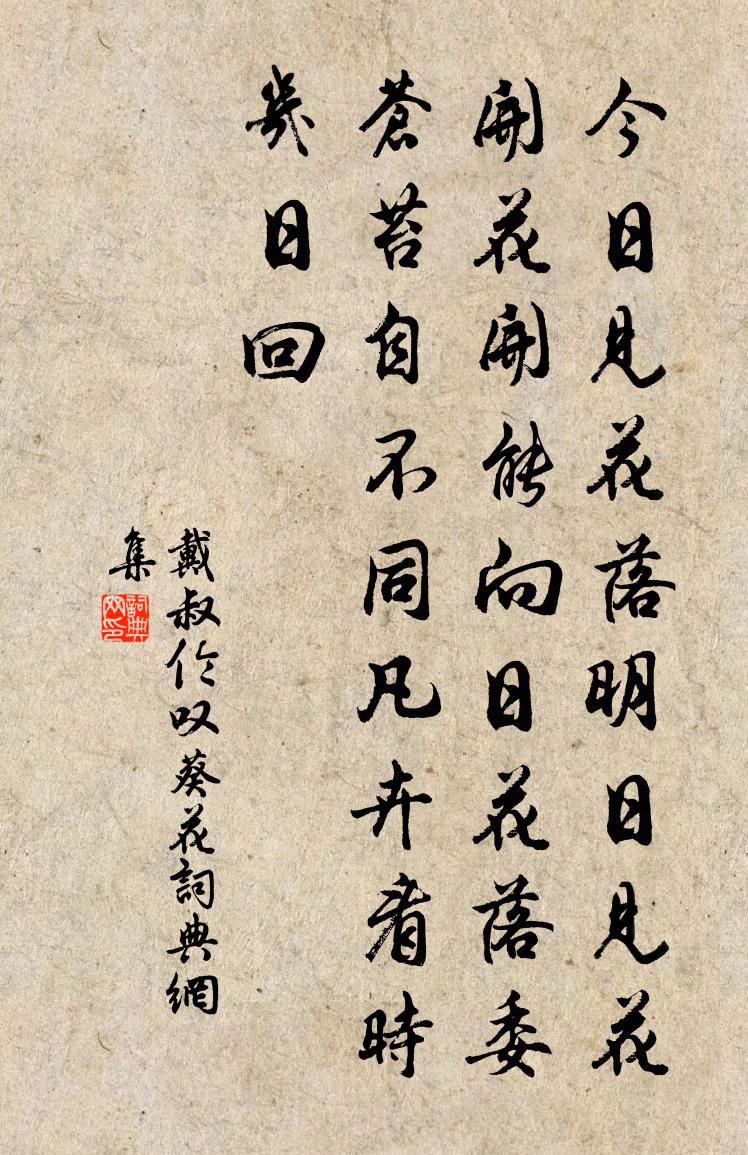 今日見花落明日見花
開花開能向日花落委
蒼苔自不同凡卉看時
幾日回
戴叔伦叹葵花詞典網
集
詞典
网印